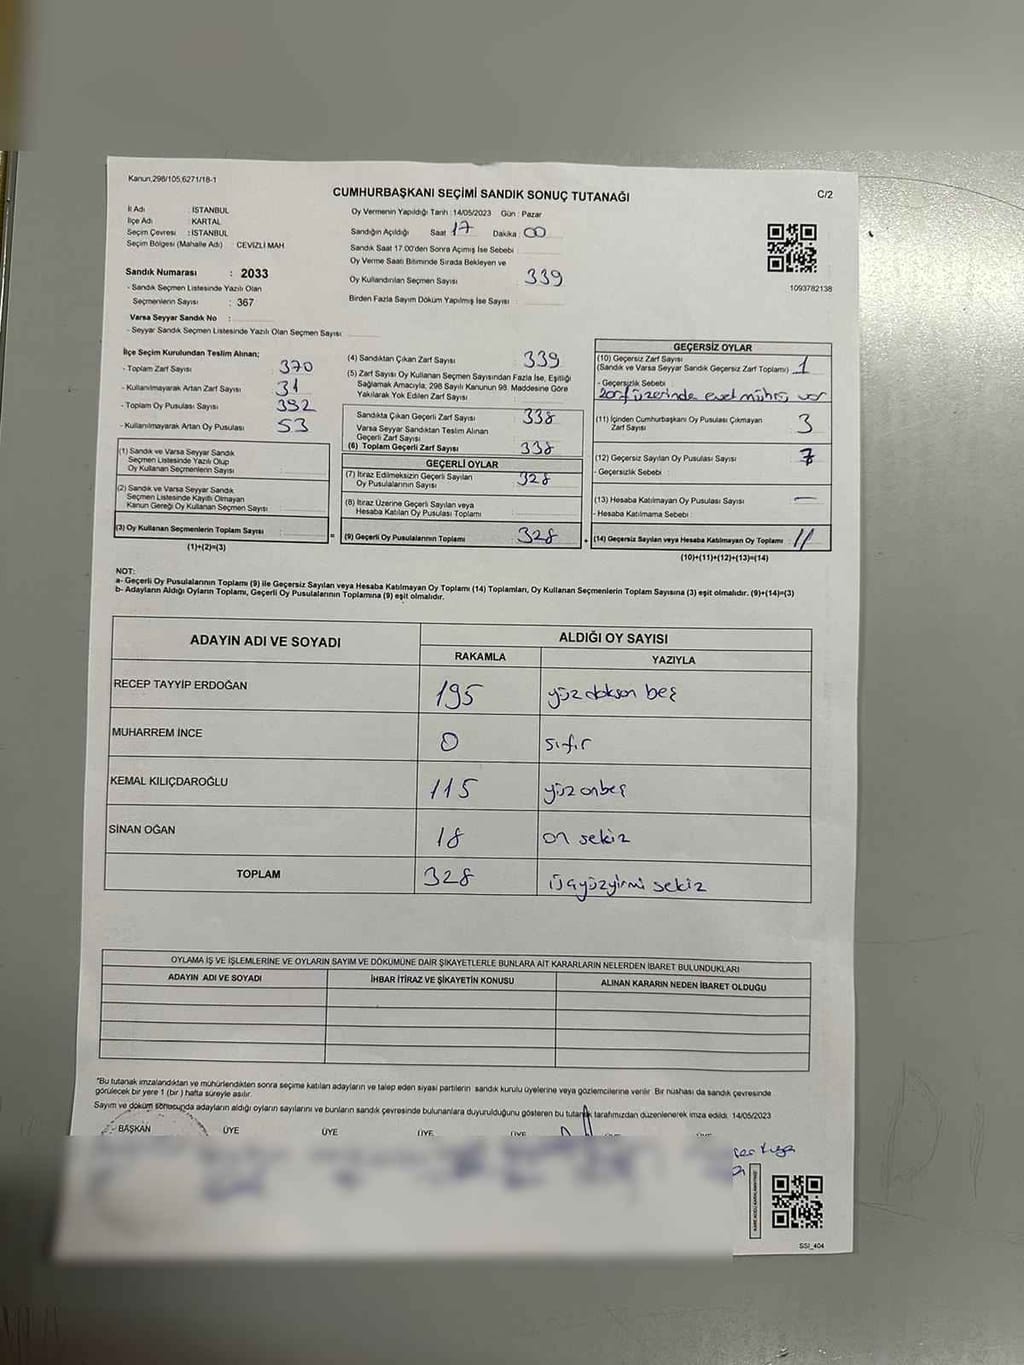 Kanun,298/105,6271/18-1
CUMHURBAŞKANI SEÇİMİ SANDIK SONUÇ TUTANAĞI
C/2
İl Adı : İSTANBUL
İlçe Adı : KARTAL
Seçim Çevresi : İSTANBUL
Seçim Bölgesi (Mahalle Adı) : CEVİZLİ MAH
Sandık Numarası : 2033
- Sandık Seçmen Listesinde Yazılı Olan
Seçmenlerin Sayısı : 367
Varsa Seyyar Sandık No :
- Seyyar Sandık Seçmen Listesinde Yazılı Olan Seçmen Sayısı
Oy Vermenin Yapıldığı Tarih : 14/05/2023 Gün : Pazar
Sandığın Açıldığı Saat 17 Dakika 00
Sandık Saat 17.00'den Sonra Açmış İse Sebebi
Oy Verme Saati Bitiminde Sırada Bekleyen ve
Oy Kullandırılan Seçmen Sayısı 339
Birden Fazla Sayım Döküm Yapılmış İse Sayısı
1093782138
İlçe Seçim Kurulundan Teslim Alınan;
- Toplam Zarf Sayısı 370
- Kullanılmayarak Artan Zarf Sayısı 31
- Toplam Oy Pusulası Sayısı 392
- Kullanılmayarak Artan Oy Pusulası 53
(1) Sandık ve Varsa Seyyar Sandık
Seçmen Listesinde Yazılı Olup
Oy Kullanan Seçmenlerin Sayısı
(2) Sandık ve Varsa Seyyar Sandık
Seçmen Listesinde Kayıtlı Olmayan
Kanun Gereği Oy Kullanan Seçmen Sayısı
(3) Oy Kullanan Seçmenlerin Toplam Sayısı
(1)+(2)=(3)
(4) Sandıktan Çıkan Zarf Sayısı 339
(5) Zarf Sayısı Oy Kullanan Seçmen Sayısından Fazla İse, Eşitliği
Sağlamak Amacıyla, 298 Sayılı Kanunun 98. Maddesine Göre
Yakılarak Yok Edilen Zarf Sayısı
Sandıkta Çıkan Geçerli Zarf Sayısı 338
Varsa Seyyar Sandıktan Teslim Alınan
Geçerli Zarf Sayısı
(6) Toplam Geçerli Zarf Sayısı 338
GEÇERLİ OYLAR
(7) İtiraz Edilmeksizin Geçerli Sayılan
Oy Pusulalarının Sayısı 328
(8) İtiraz Üzerine Geçerli Sayılan veya
Hesaba Katılan Oy Pusulası Toplamı
= (9) Geçerli Oy Pusulalarının Toplamı 328 +
GEÇERSİZ OYLAR
(10) Geçersiz Zarf Sayısı
(Sandık ve Varsa Seyyar Sandık Geçersiz Zarf Toplamı) 1
- Geçersizlik Sebebi
zarf üzerinde evet mührü var
(11) İçinden Cumhurbaşkanı Oy Pusulası Çıkmayan
Zarf Sayısı 3
(12) Geçersiz Sayılan Oy Pusulası Sayısı 7
- Geçersizlik Sebebi
(13) Hesaba Katılmayan Oy Pusulası Sayısı —
- Hesaba Katılmama Sebebi
(14) Geçersiz Sayılan veya Hesaba Katılmayan Oy Toplamı : 11
(10)+(11)+(12)+(13)=(14)
NOT:
a- Geçerli Oy Pusulalarının Toplamı (9) ile Geçersiz Sayılan veya Hesaba Katılmayan Oy Toplamı (14) Toplamları, Oy Kullanan Seçmenlerin Toplam Sayısına (3) eşit olmalıdır. (9)+(14)=(3)
b- Adayların Aldığı Oyların Toplamı, Geçerli Oy Pusulalarının Toplamına (9) eşit olmalıdır.
ADAYIN ADI VE SOYADI
ALDIĞI OY SAYISI
RAKAMLA YAZIYLA
RECEP TAYYİP ERDOĞAN 195 yüz doksan beş
MUHARREM İNCE 0 sıfır
KEMAL KILIÇDAROĞLU 115 yüz onbeş
SİNAN OĞAN 18 on sekiz
TOPLAM 328 üçyüzyirmi sekiz
OYLAMA İŞ VE İŞLEMLERİNE VE OYLARIN SAYIM VE DÖKÜMÜNE DAİR ŞİKAYETLERLE BUNLARA AİT KARARLARIN NELERDEN İBARET BULUNDUKLARI
ADAYIN ADI VE SOYADI İHBAR İTİRAZ VE ŞİKAYETİN KONUSU ALINAN KARARIN NEDEN İBARET OLDUĞU
"Bu tutanak imzalandıktan ve mühürlendikten sonra seçime katılan adayların ve talep eden siyasi partilerin sandık kurulu üyelerine veya gözlemcilerine verilir. Bir nüshası da sandık çevresinde
görülecek bir yere 1 (bir) hafta süreyle asılır.
Sayım ve döküm sonucunda adayların aldığı oyların sayılarını ve bunların sandık çevresinde bulunanlara duyurulduğunu gösteren bu tutanak tarafımızdan düzenlenerek imza edildi. 14/05/2023
BAŞKAN ÜYE ÜYE ÜYE ÜYE
SSİ_404